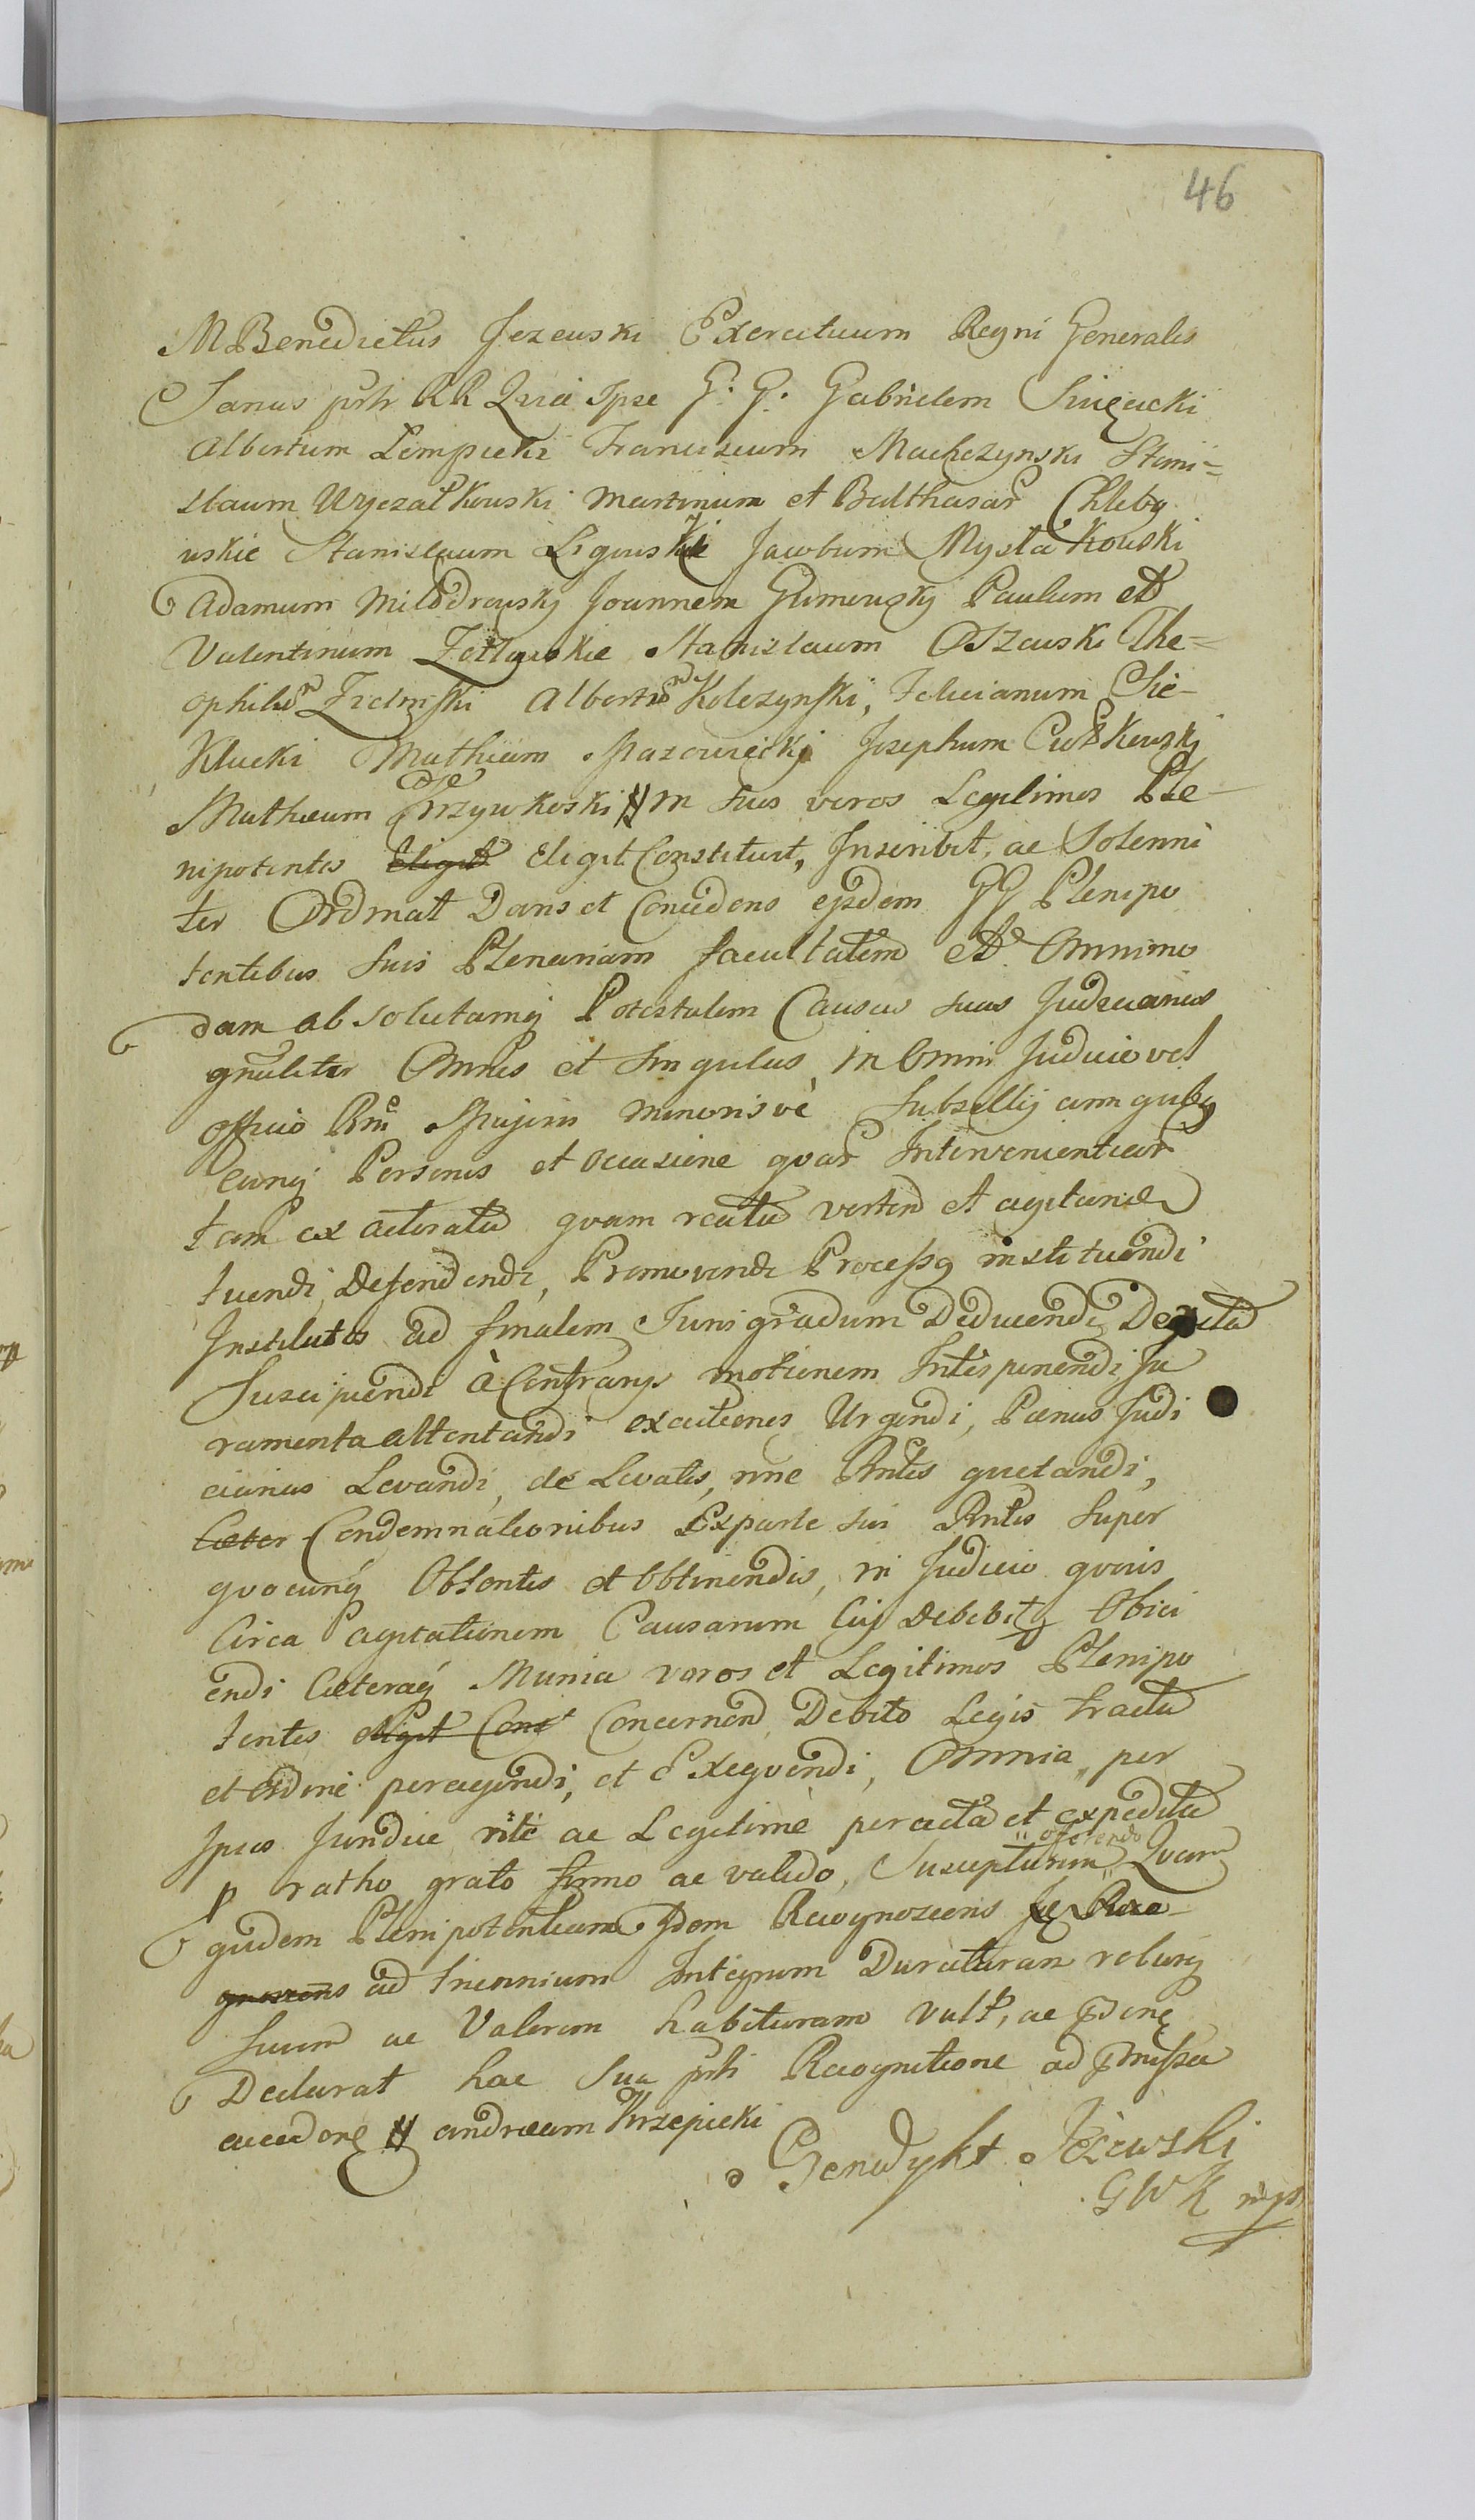 46
M Benedictus Jezewski Exercituum Regni Generalis
Sanus prħ RR Quia Ipse G. G. Gabrielem Sinięacki
Albertum Lempicki Franciscum Machczynski Stani=
slaum Wyczałkowski Martinum et Balthasar Chlebo
wskie Stanislaum Ligowski Jacobum Mystkowski
Adamum Milodrowsky Joannem Gumowsky Paulum et
Valentinum Zotlowskie Stanislaum Olszewski The=
ophilum Zielinski Albertum Kolczynski, Felicianum Sie-
Klucki Mathiam Mazowiecki Josephum Cwikowski
Mathaeum Grzywkoski # in suos veros Legitimos Ple-
nipotentes Eligit Eligit Constituit, Inscribit, ac Solenni
ter Ordinat Dans et Concedens ejsdem GG Plenipo
tentibus suis Plenariam facultatem et Omnimo
dam absolutamq Potestatem Causas suas Judiciarias
gnaliter Omnes et singulas in Omni Judicio vel
officio Rni Majoris minorisve Subsellij cum quibq
cunq Personis et occasione quar Intervenientiar
tam ex actoratu quam reatu verten et agitand
tuendi, Defendendi, Promovendi Processq instituendi
Institutos ad finalem Juris gradum Deducendi Decreta
Suscipiendi à Contrarys motionem Interponendi Ju
ramenta attentandi executiones Urgendi, Paenas Judi
ciarias Levandi, de Levatis, nne Rntis quietandi,
Caeter Condemnationibus Exparte sui Rntis super
quocunq Obtentis et Obtinendis, in Judicio quovis
Circa agitationem Causarum Cuj Debebit Obici
endi Caeteraq Munia veros et Legitimos Plenipo
tentes eligit Const Concernen Debito Legis tractu
et ordine peragendi, et Exequendi, Omnia per
Ipsos Juridice rite ac Legitime peracta et expedita
p ratho grato firmo ac valido, Suscepturum offerendo Quam
quidem Plenipotentiam Idem Recognoscens se Reco
gnoscens ad triennium Integrum Duraturam roburq
suum ac Valorem habituram vult, ac
Declarat hac sua prħ Recognitione ad pmissa
acceden # andream Krzepicki
Benedykt Jeżewski
GWK mp